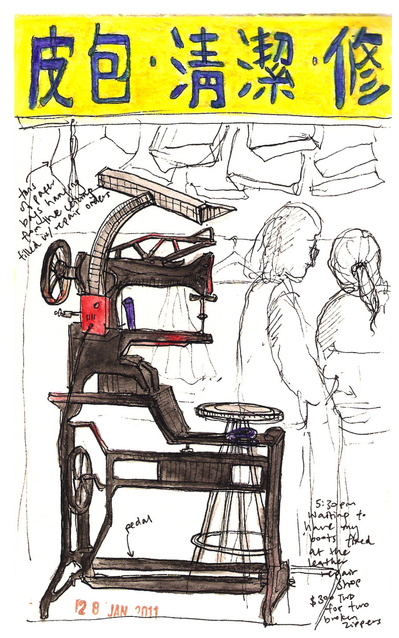 皮包·清潔·修
tons
of paper
bags hanging
from the ceiling
filled w/ repair orders
pedal
5:30pm
Waiting to
have my
boots fixed
at the
leather
repair
shop
$300
for two
broken
zippers
28 JAN 2011